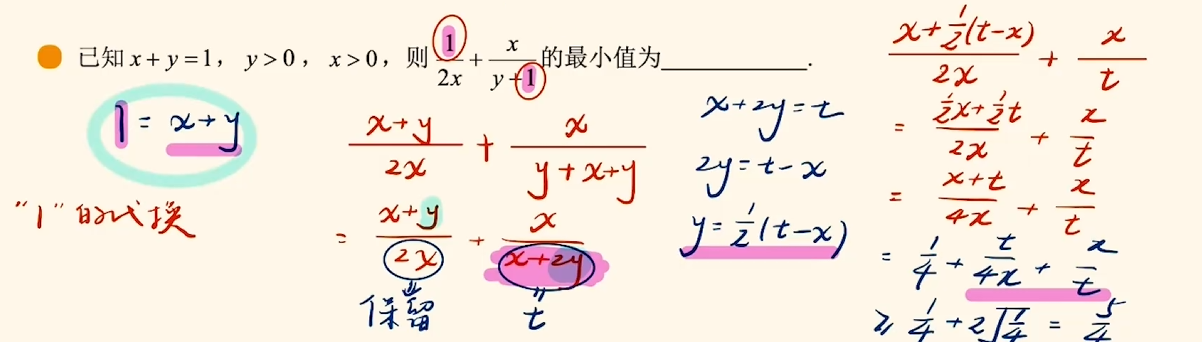 已知 x + y = 1， y > 0， x > 0，则 1/(2x) + x/(y+1) 的最小值为____________.
1 = x+y
"1"的代换
(x+y)/(2x) + x/(y+x+y)
= (x+y)/(2x) + x/(x+2y)
保留
t
x+2y=t
2y=t-x
y=1/2(t-x)
(x+1/2(t-x))/(2x) + x/t
= (1/2x+1/2t)/(2x) + x/t
= (x+t)/(4x) + x/t
= 1/4 + t/(4x) + x/t
≥ 1/4 + 2√(1/4) = 5/4